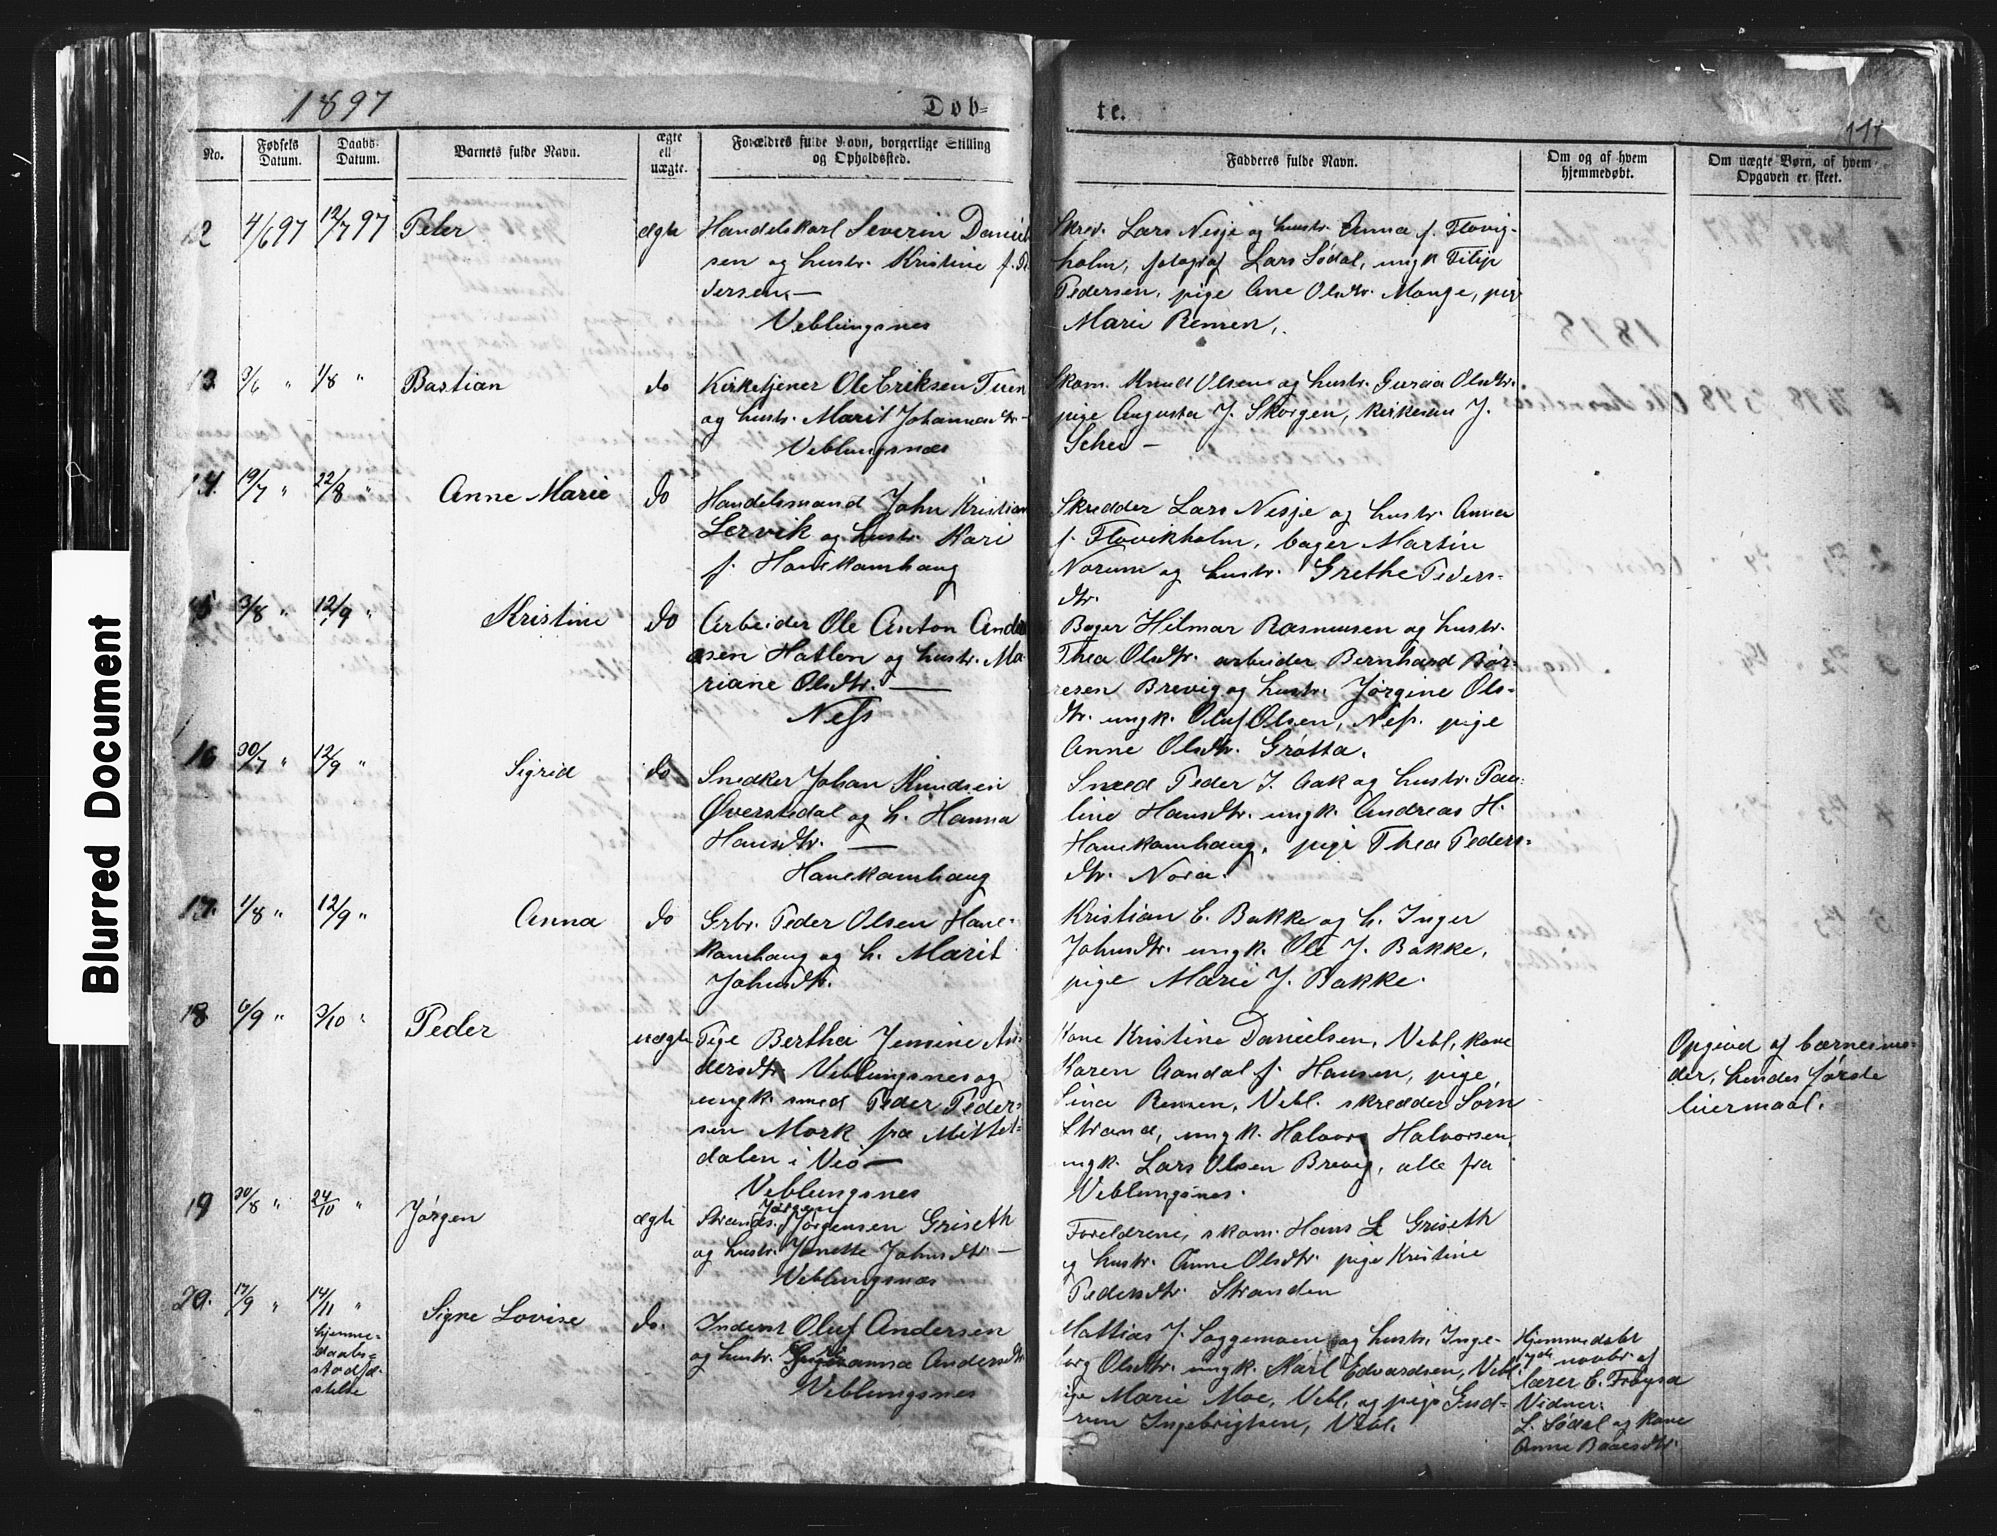 Blurred Document
1897
Døb-
te.
111
No.
Fødsels Datum.
Daabs-Datum.
Barnets fulde Navn.
ægte ell uægte.
Forældres fulde Navn, borgerlige Stilling og Opholdssted.
Fadderes fulde Navn.
Om og af hvem hjemmedøbt.
Om uægte Børn, af hvem Opgaven er skeet.
12 4/6 97 12/7 97 Peter ægte
Handelskarl Severin Daniel-
sen og hustr. Kristine f. Pe
dersen. —
Veblungsnes
Skræd. Lars Nesje og hustr. Anna f. Flovig-
holm, fotograf Lars Sødal, ungk Filip
Pedersen, pige Ane Olsdtr. Monge, pige
Marie Bensen.
1898
13 3/6 " 1/8 " Bastian do
Kirketjener Ole Eriksen Tuen
og hustr. Marit Johannesdtr. —
Veblungsnæs
Skom. Knud Olsen og hustr. Guria Olsdtr.
pige Augusta J. Skorgen, kirkesan J.
Schei —
14. 19/7 " 22/8 " Anne Marie do
Handelsmand John Kristian
Lervik og hustr. Kari
f. Hanekamhaug
Skrædder Lars Nesje og hustr. Anna
f. Flovikholm, bager Martin
Norum og hustr. Grethe Peders-
dtr.
15 3/8 " 12/9 " Kristine do
Arbeider Ole Anton Andre
asen Hatlen og hustr. Ma-
riane Olsdtr. —
Ness
Bager Hilmar Rasmusen og hustr.
Thea Olsdtr. arbeider Bernhard Bør-
resen Brevig og hustr. Jørgine Ols-
dtr. ungk. Oluf Olsen, Nes. pige
Anne Olsdtr. Grøtta.
16 30/7 " 12/9 " Sigrid do
Snedker Johan Knudsen
Øverstedal og h. Hanna
Hansdtr. —
Hanekamhaug
Smed Peder J. Aak og hustr. Pau-
line Hansdtr. ungk. Andreas H.
Hanekamhaug, pige Thea Peders-
dtr. Nora.
17. 1/8 " 12/9 " Anna do
Grbr. Peder Olsen Hane-
kamhaug og h. Marit
Johnsdtr.
Kristian E. Bakke og h. Inger
Johnsdtr. ungk. Ole J. Bakke,
pige Marie J. Bakke.
18 6/9 " 3/10 " Peder uægte
Pige Bertha Jensine An-
dersdtr. Veblungsnes og
ungk. smed Peder Peder-
sen Mork fra Mittet-
dalen i Veø —
Veblungsnes
Kone Kristine Danielsen, Vebl, kone
Karen Aandal f. Hansen, pige
Lina Bensen, Vebl. skrædder Sørn
Strand, ungk. Halvor Halvorsen,
ungk. Lars Olsen Brevig, alle fra
Veblungsnes.
Opgived af barnesmo-
der, hendes første
leiermaal.
19 30/8 " 24/10 " Jørgen ægte
Jørgen
Strands. Jørgensen Griseth
og hustr. Jonette Johnsdtr. —
Veblungsnæs
Foreldrene, skom. Hans L Griseth
og hustr. Anne Olsdtr. pige Kristine
Pedersdtr. Stranden
20. 17/9 " 14/11 " Signe Lovise do.
hjemme-
daabs-
stadfæ-
stelse
Inderst Oluf Andersen
og hustr. Andersdtr.
Veblungsnes
Mattias J. Soggemoen og hustr. Inge-
borg Olsdtr. ungk. Karl Edvardsen, Vebl.
pige Marie Moe, Vebl, og pige Gud-
run Ingebrigtsen, Vebl.
Hjemmedøbt
novbr. af
lærer E. Frøysa
Vidner:
L. Sødal og kone
Anne Baardsdtr.